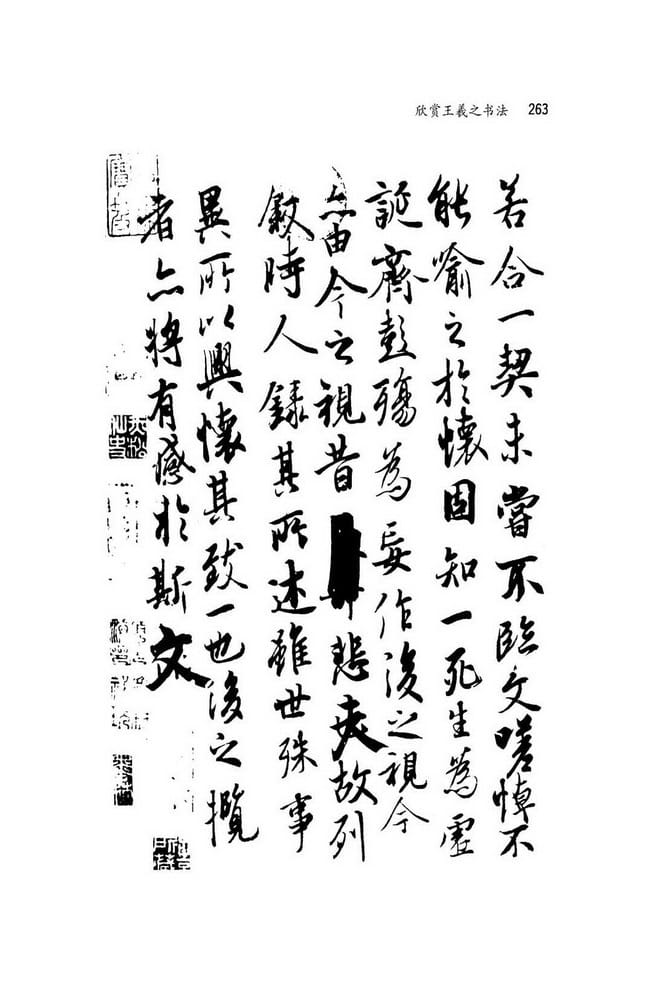 欣赏王羲之书法 263
若合一契未嘗不臨文嗟悼不
能喻之於懷固知一死生為虛
誕齊彭殤為妄作後之視今
亦由今之視昔悲夫故列
敘時人錄其所述雖世殊事
異所以興懷其致一也後之攬
者亦將有感於斯文